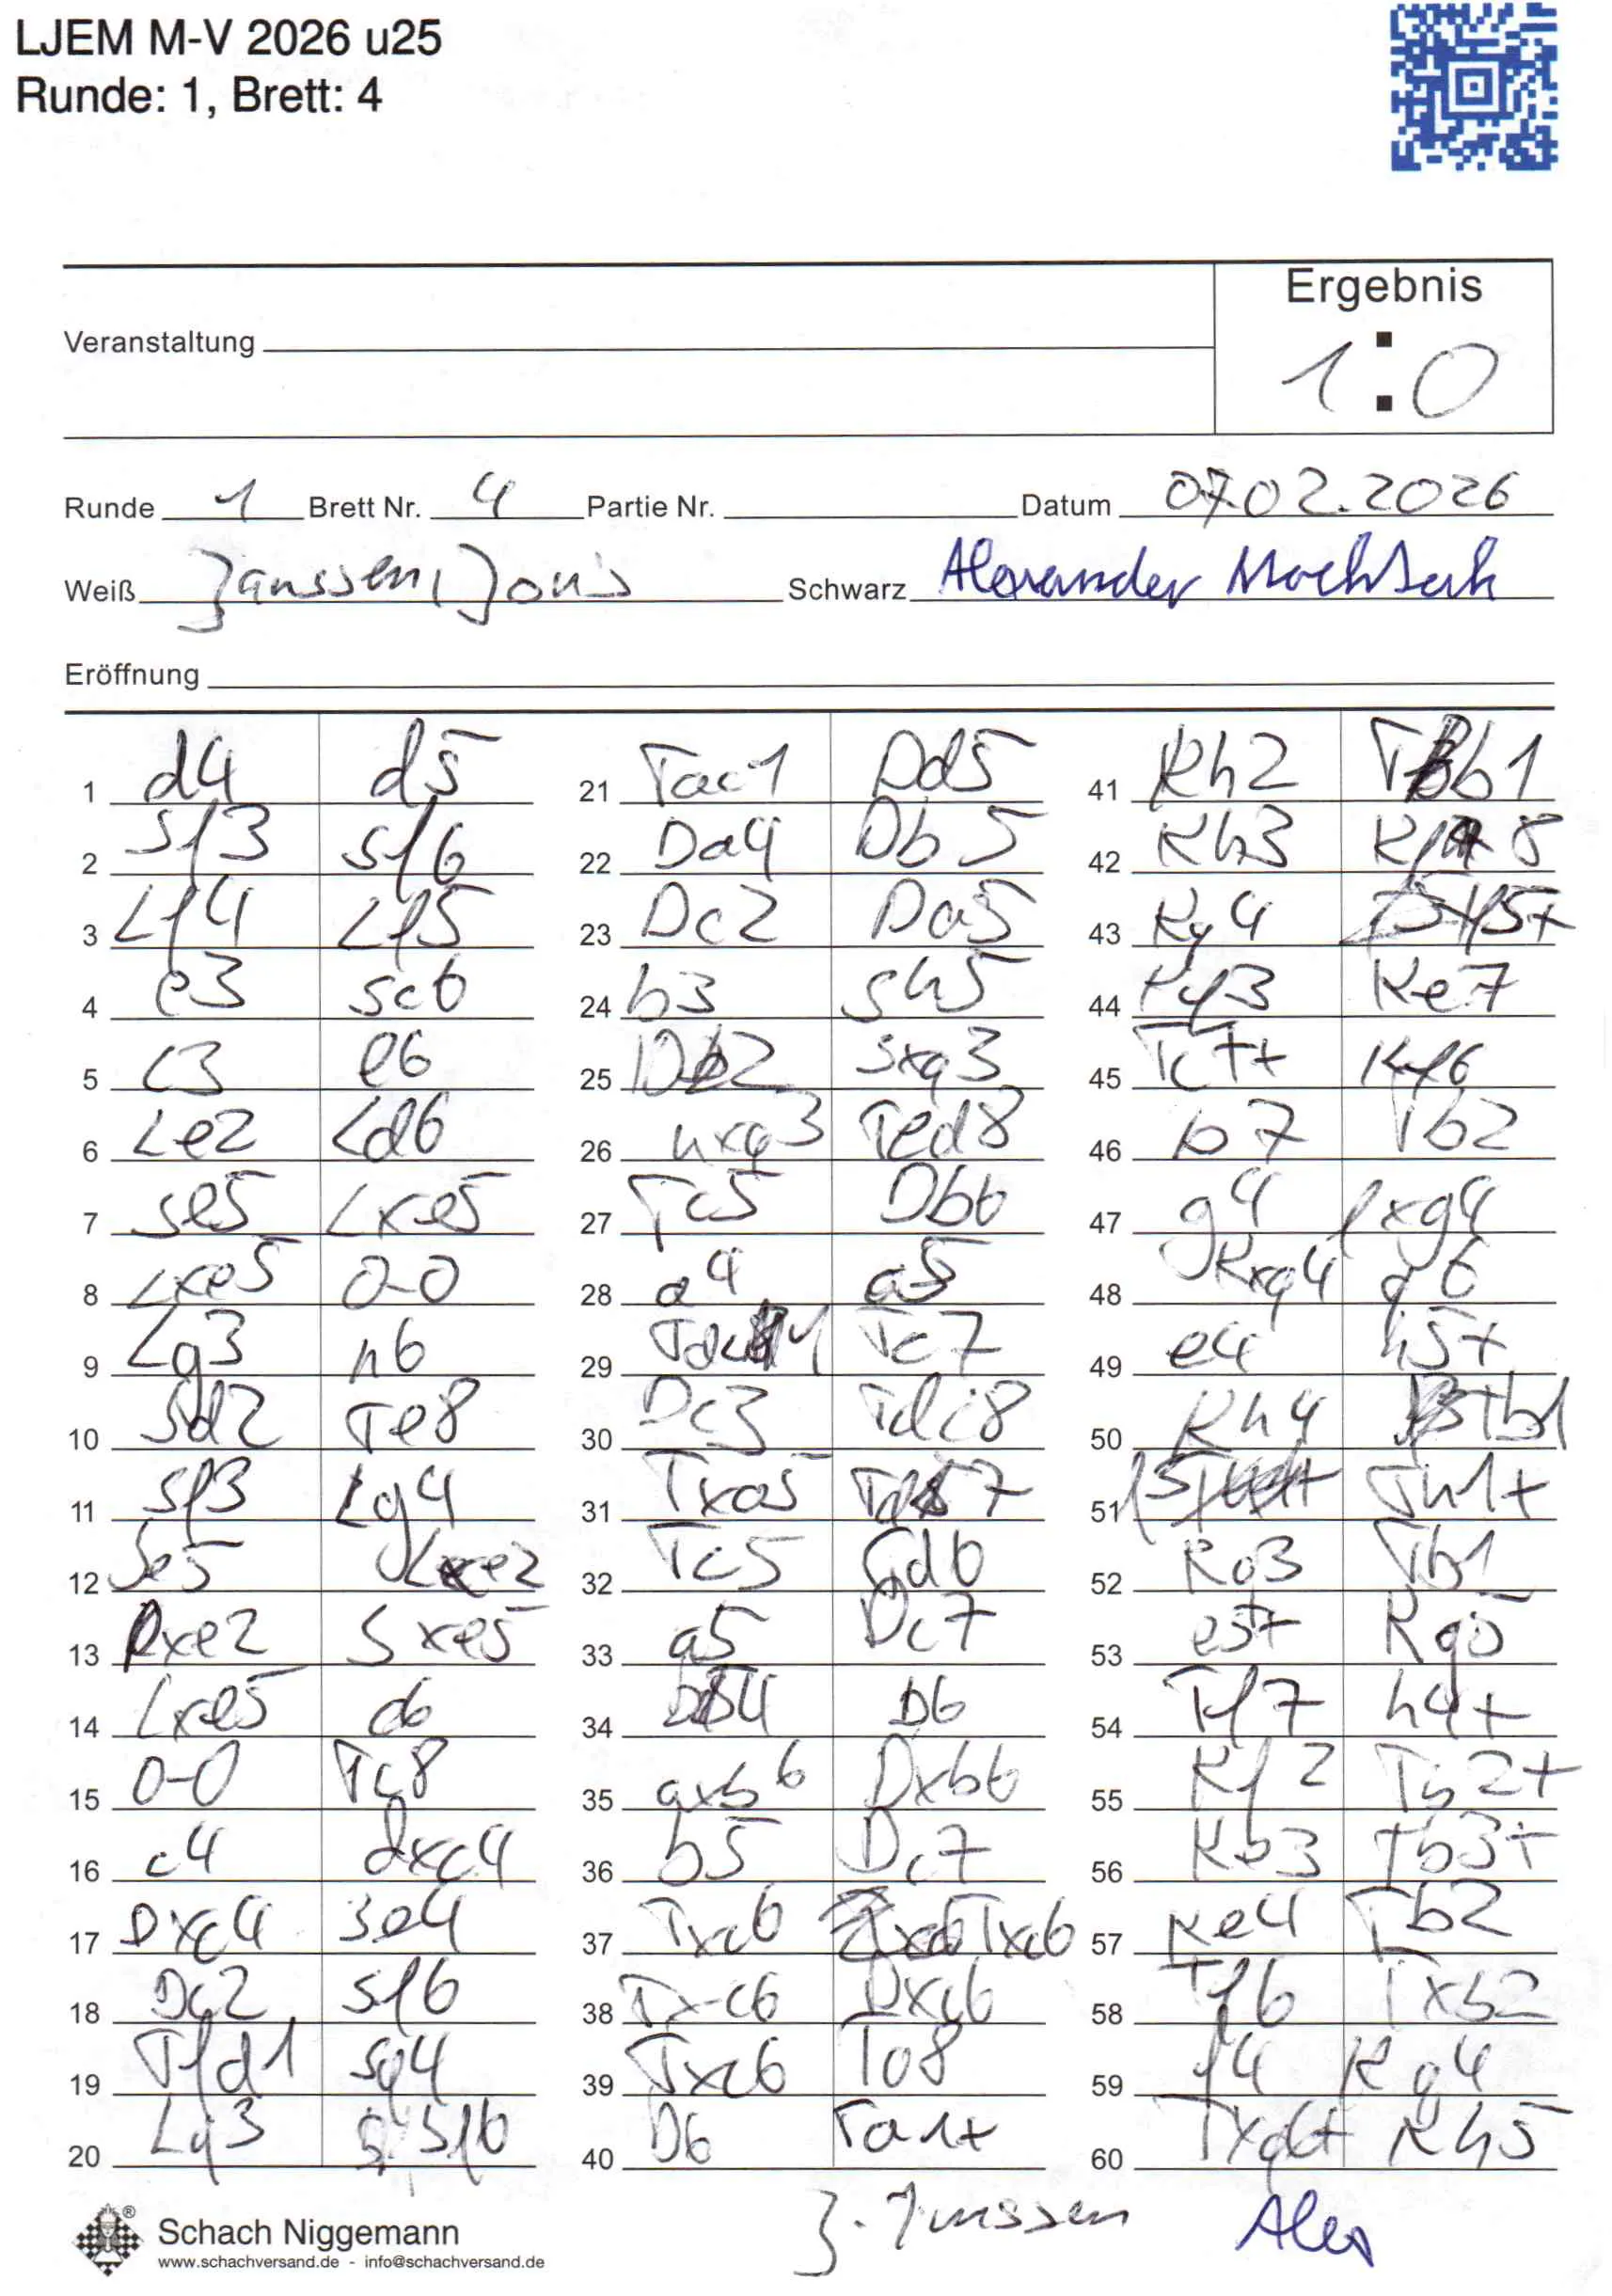 LJEM M-V 2026 u25
Runde: 1, Brett: 4
Ergebnis
1:0
Veranstaltung
Runde 1 Brett Nr. 4 Partie Nr. Datum 07.02.2026
Weiß Janssen, Joris Schwarz Alexander
Eröffnung
1 d4 d5
2 Sf3 Sf6
3 Lf4 Lf5
4 e3 Sc6
5 c3 e6
6 Le2 Ld6
7 Se5 Lxe5
8 Lxe5 0-0
9 Lg3 h6
10 Sd2 Te8
11 Sf3 Lg4
12 Se5 Lxe2
13 Dxe2 Sxe5
14 Lxe5 c6
15 0-0 Tc8
16 c4 dxc4
17 Dxc4 Se4
18 Dc2 Sf6
19 Tfd1 Sg4
20 Lg3 Sf6
21 Tac1 Dd5
22 Da4 Db5
23 Dc2 Da5
24 b3 Sh5
25 Db2 Sxg3
26 hxg3 Ted8
27 Tc5 Db6
28 a4 a5
29 Tdc1 Tc7
30 Dc3 Tdc8
31 Txa5 Td7
32 Tc5 Td6
33 a5 Dc7
34 b4 b6
35 axb6 Dxb6
36 b5 Dc7
37 Txc6 Txc6
38 Txc6 Dxc6
39 Txc6 Ta8
40 b6 Ta1+
41 Kh2 Tb1
42 Kh3 Kf8
43 Kg4 f5+
44 Kf3 Ke7
45 Tc7+ Kf6
46 b7 Tb2
47 g4 fxg4
48 Kxg4 g6
49 e4 h5+
50 Kh4 Tb1
51 f3 Th1+
52 Kg3 Tb1
53 e5+ Kg5
54 Tf7 h4+
55 Kf2 Tb2+
56 Ke3 Tb3+
57 Ke4 Tb2
58 Tf6 Txb2
59 f4 Kg4
60 Txg6+ Kh5
Schach Niggemann
www.schachversand.de - info@schachversand.de
J. Janssen Alex